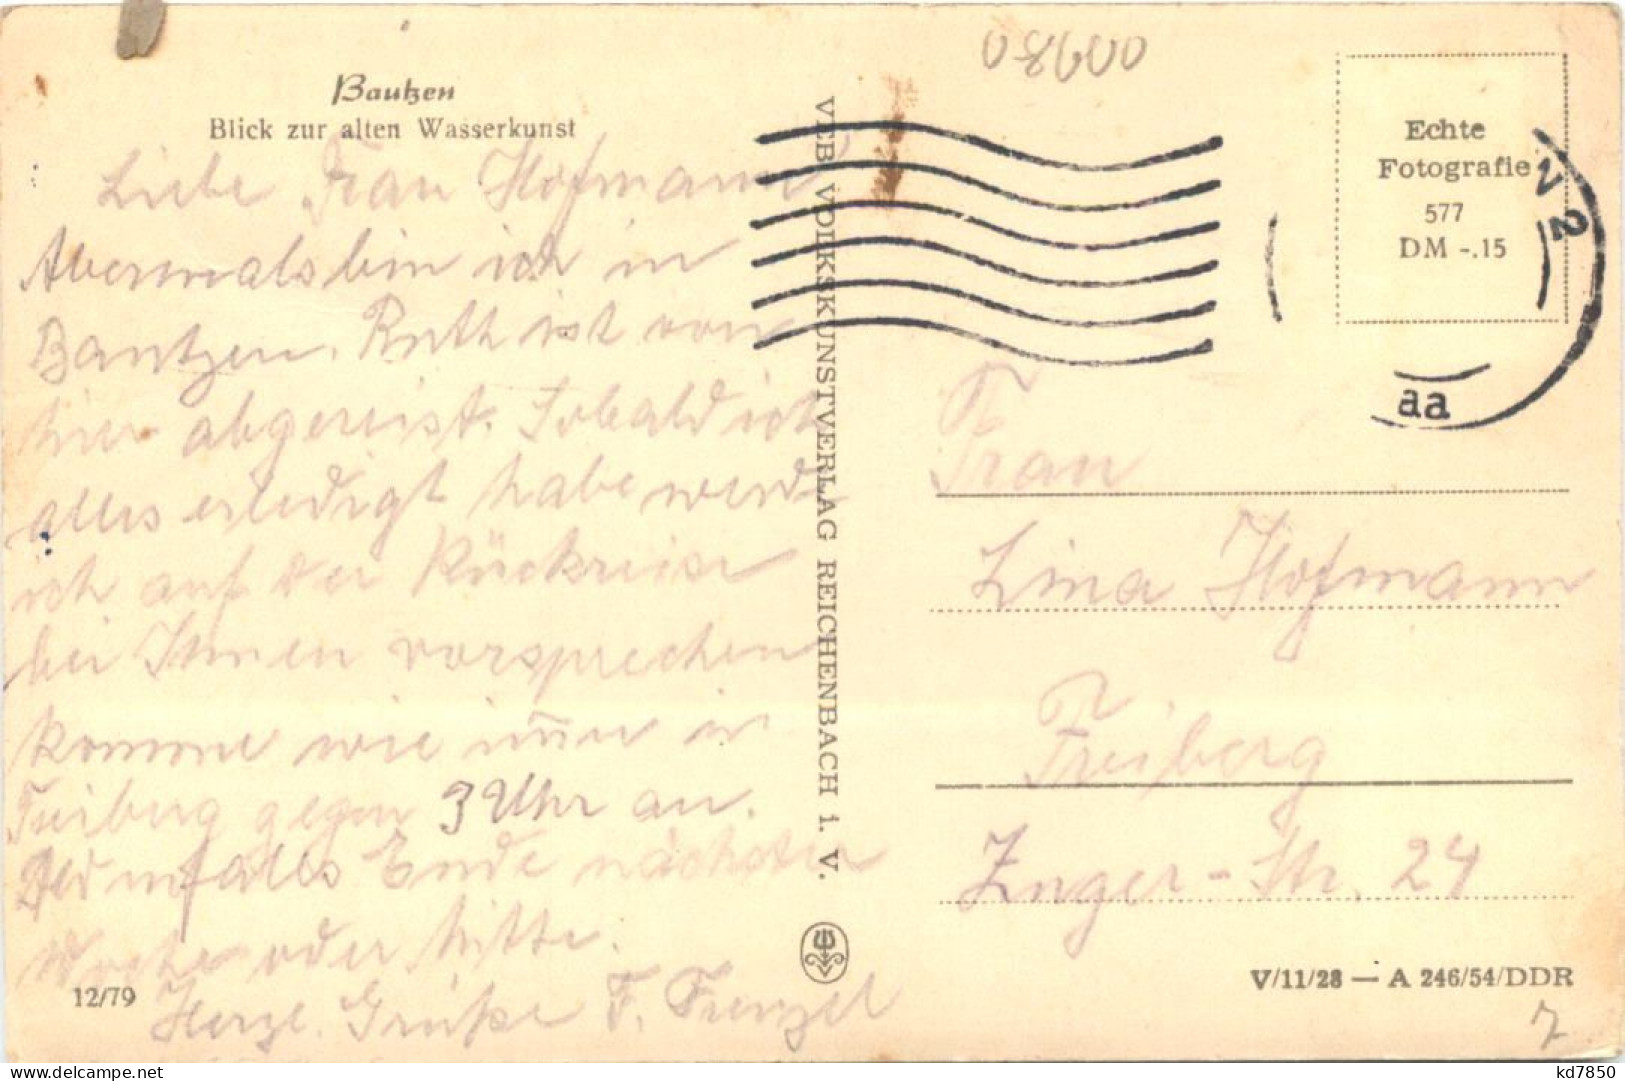 08600
Bautzen
Blick zur alten Wasserkunst
Liebe Frau Hofmann
Abermals bin ich in
Bautzen. Ruth ist von
hier abgereist. Sobald ich
alles erledigt habe werde
ich auf der Rückreise
bei Ihnen vorsprechen
komme wie im̅er in
Freiberg gegen 3 Uhr an.
Ende nächster
Woche oder Mitte.
Herzl. Grüße F. Frenzel
12/79
VEB VOLKSKUNSTVERLAG REICHENBACH i. V.
Echte
Fotografie
577
DM -.15
aa
Frau
Lina Hofmann
Freiberg
Str. 24
V/11/28 — A 246/54/DDR
kd7850